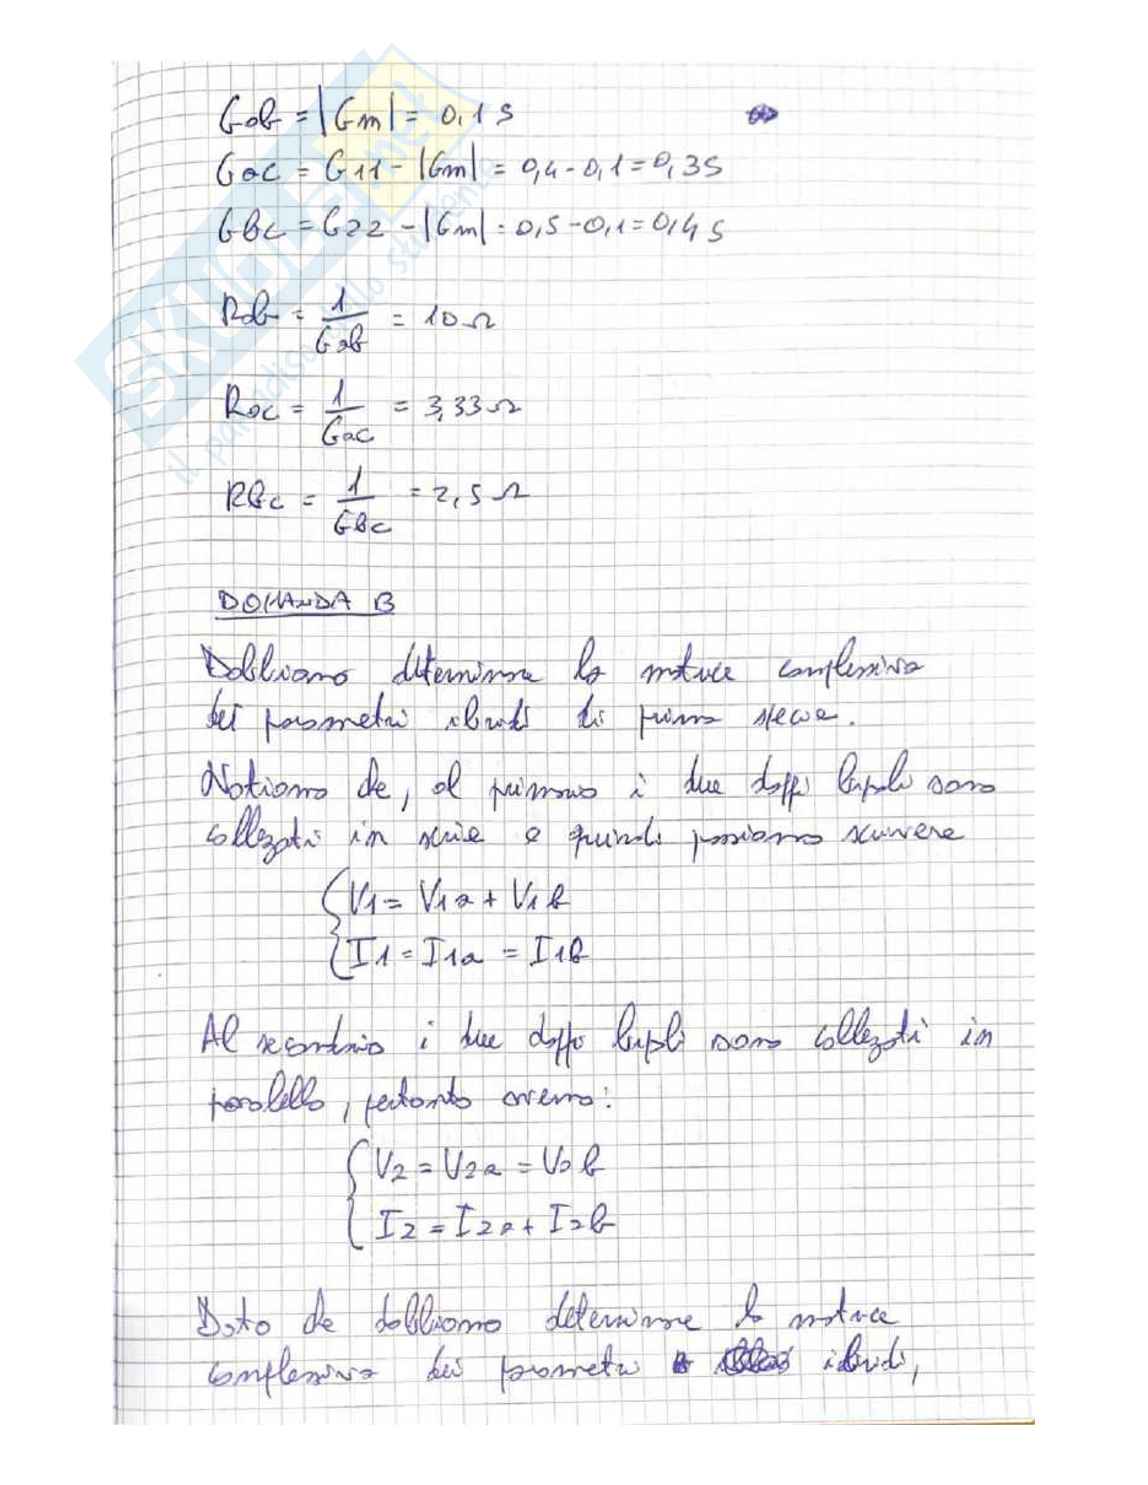 Gab = |Gm| = 0,1 S
Gac = G11 - |Gm| = 0,4 - 0,1 = 0,3 S
Gbc = G22 - |Gm| = 0,5 - 0,1 = 0,4 S
Rab = 1/Gab = 10 Ω
Rac = 1/Gac = 3,33 Ω
Rbc = 1/Gbc = 2,5 Ω
DOMANDA B
Dobbiamo determinare la matrice complessiva
dei parametri ibridi di prima specie.
Notiamo che, al primario i due doppi bipoli sono
collegati in serie e quindi possiamo scrivere
V1 = V1a + V1b
I1 = I1a = I1b
Al secondario i due doppi bipoli sono collegati in
parallelo, pertanto avremo:
V2 = V2a = V2b
I2 = I2a + I2b
Dato che dobbiamo determinare la matrice
complessiva dei parametri ibridi,
SKUOLA.net
il paradiso dello studente